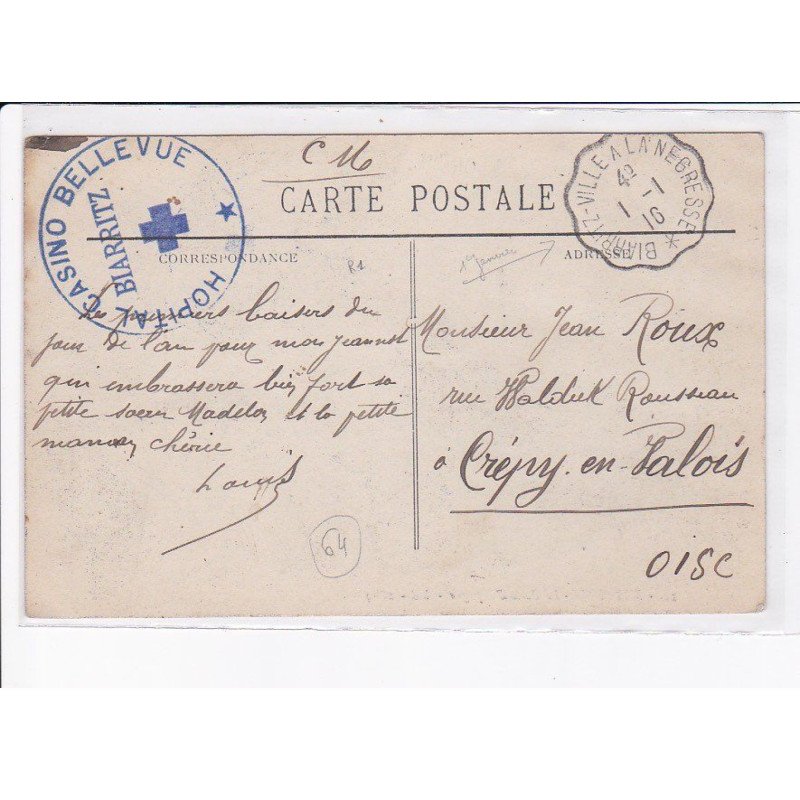 HOPITAL CASINO BELLEVUE
BIARRITZ
C M
CARTE POSTALE
BIARRITZ-VILLE A LA NEGRESSE
42
1 - 1
16
CORRESPONDANCE
R1
1er Janvier
ADRESSE
Les premiers baisers du
jour de l'an pour mon Jeannot
qui embrassera bien fort sa
petite soeur Madelon et la petite
maman chérie
Louis
Monsieur Jean Roux
rue Waldeck Rousseau
à Crépy-en-Valois
OISE
64